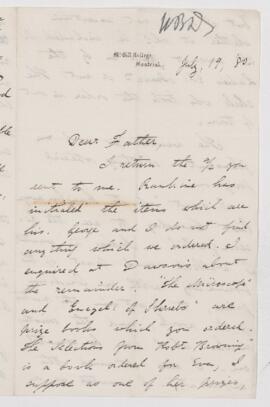 WBD
McGill College,
Montreal,
July 19, 80.
Dear Father,
I return the a/c you
sent to me. Rankine has
initialed the items which are
his. George and I do not find
anything which we ordered. I
enquired at Dawson's about
the remainder. The "Microscope"
and " of Shrubs" are
prize books which you ordered.
The "Selections from Robt Browning"
is a book ordered for Eva, I
suppose as one of her prizes,